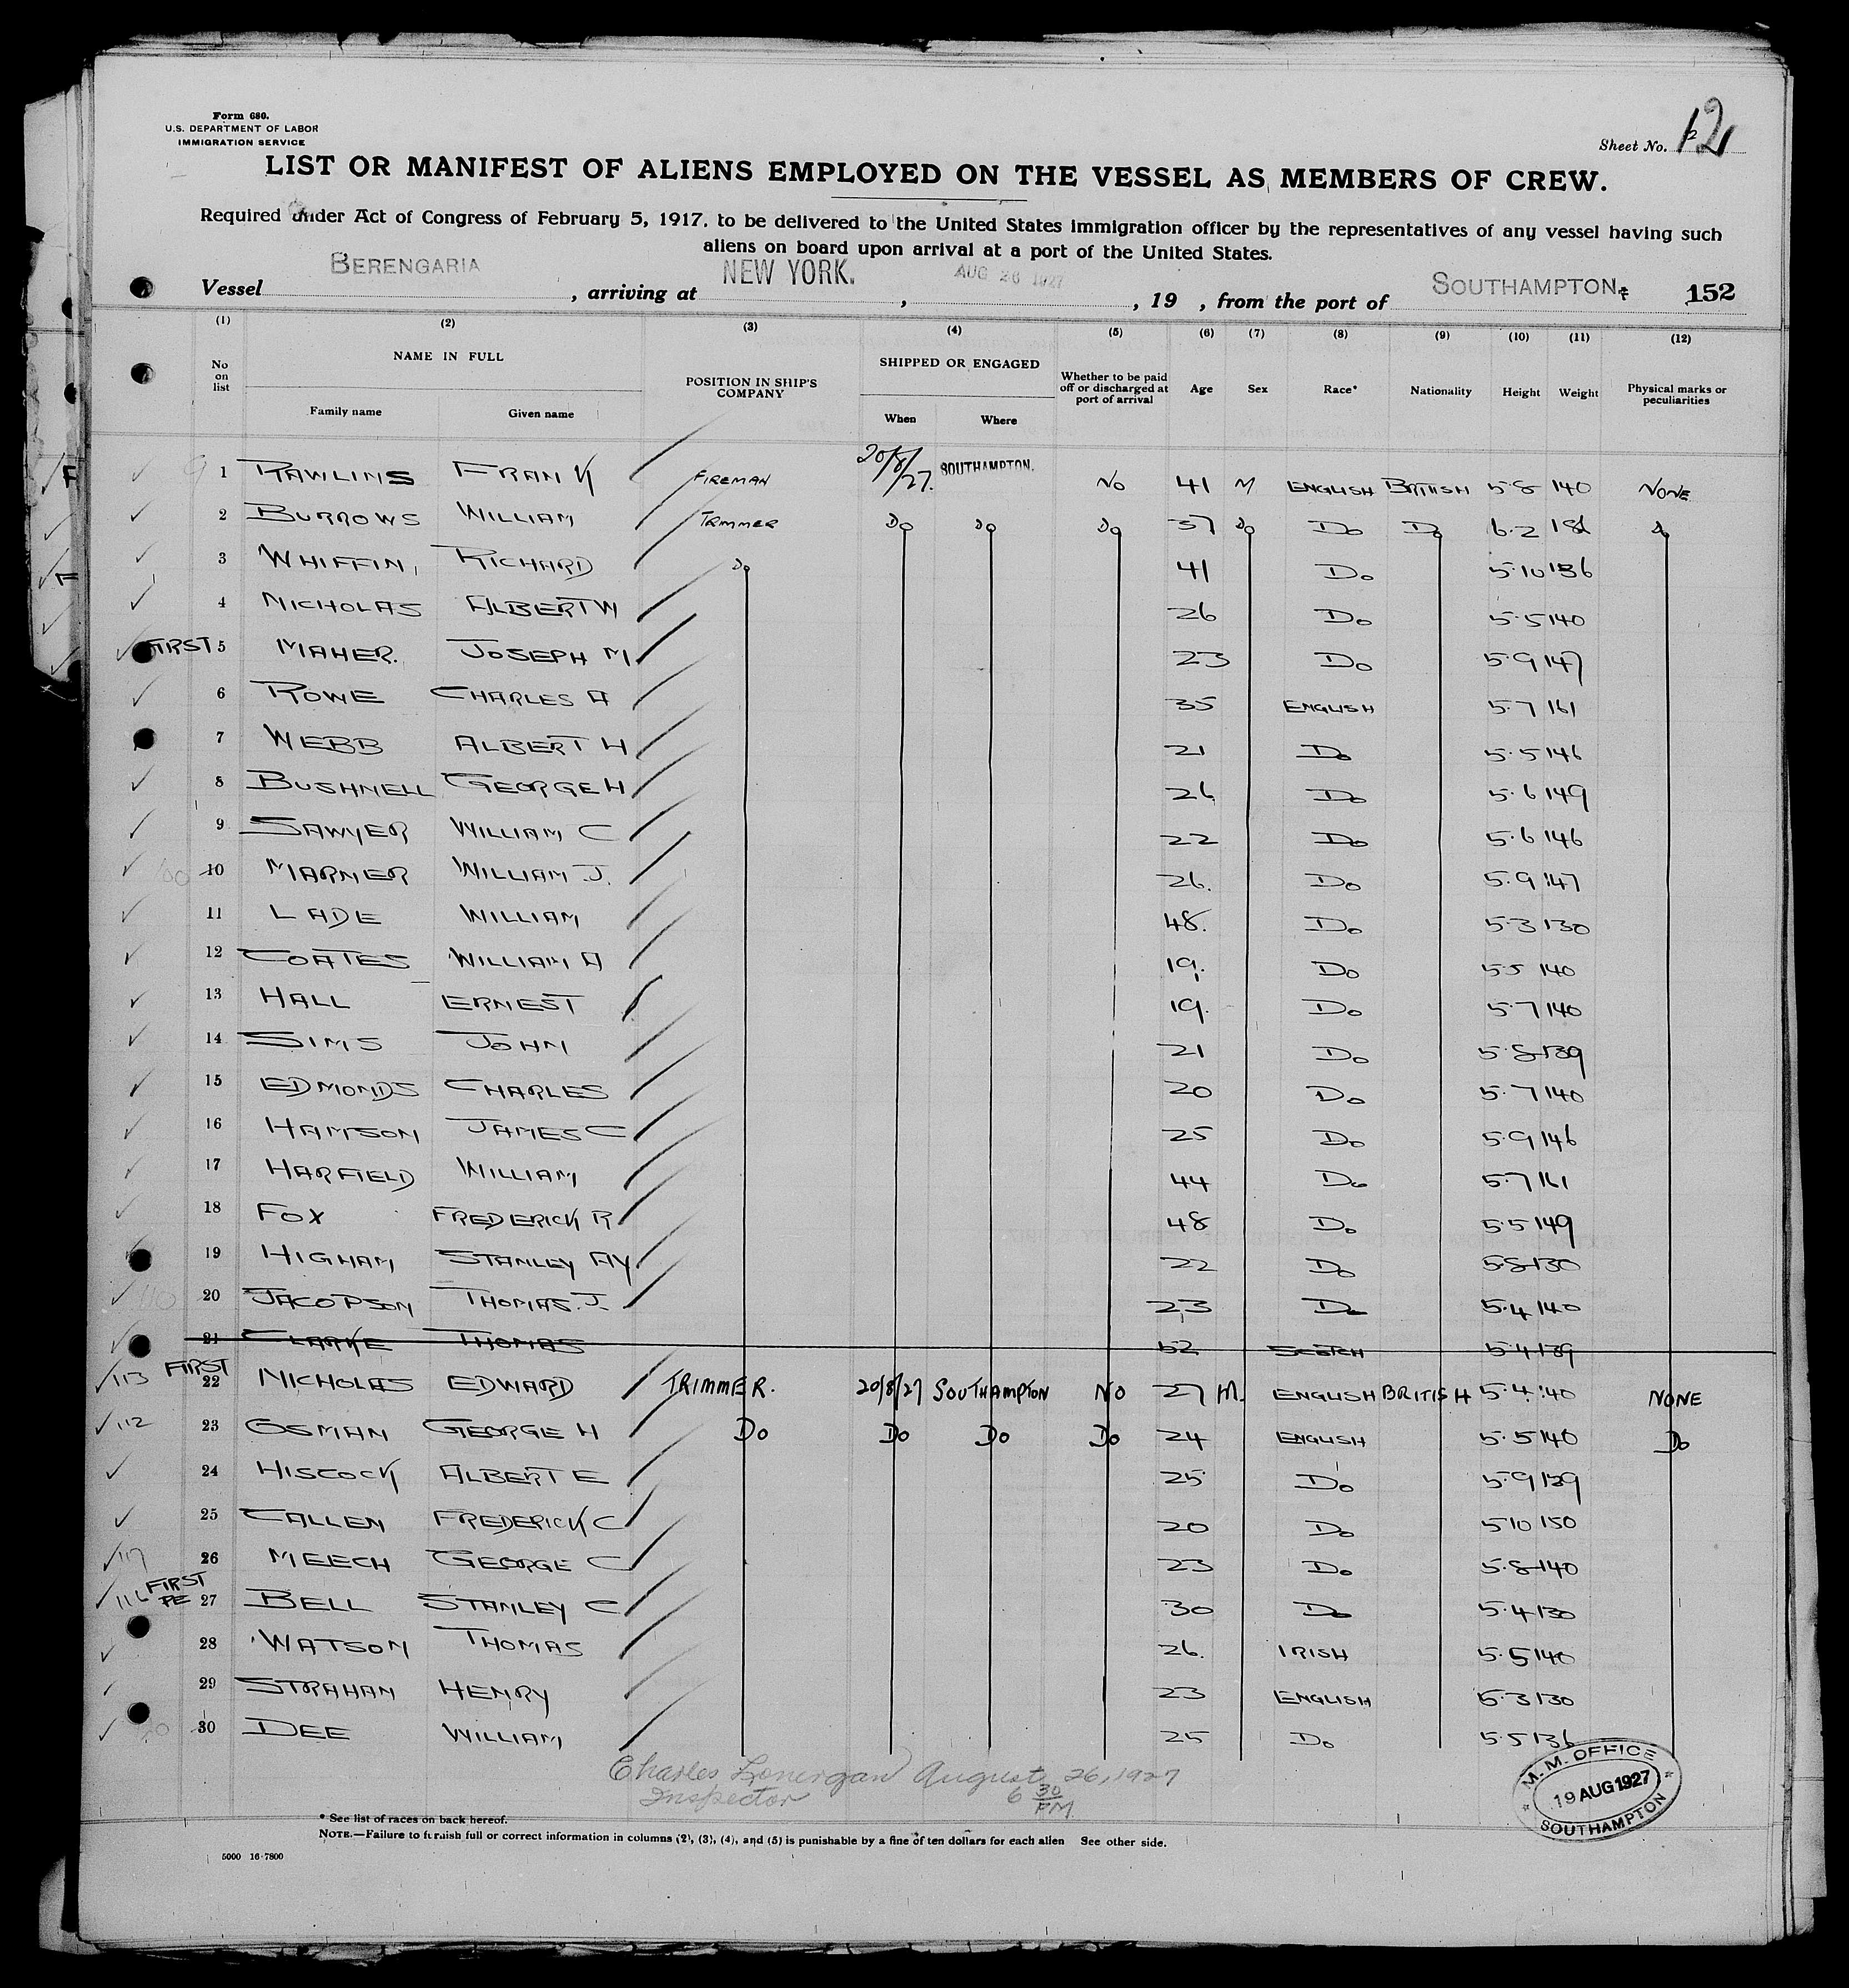 Form 680.
U.S. DEPARTMENT OF LABOR
IMMIGRATION SERVICE
Sheet No. 12
LIST OR MANIFEST OF ALIENS EMPLOYED ON THE VESSEL AS MEMBERS OF CREW.
Required under Act of Congress of February 5, 1917, to be delivered to the United States immigration officer by the representatives of any vessel having such
aliens on board upon arrival at a port of the United States.
Vessel BERENGARIA, arriving at NEW YORK., AUG 26 1927, 19 , from the port of SOUTHAMPTON. 152
(1) (2) (3) (4) (5) (6) (7) (8) (9) (10) (11) (12)
No on list NAME IN FULL Family name Given name POSITION IN SHIP'S COMPANY SHIPPED OR ENGAGED When Where Whether to be paid off or discharged at port of arrival Age Sex Race* Nationality Height Weight Physical marks or peculiarities
1 RAWLINS FRANK FIREMAN 20/8/27. SOUTHAMPTON. NO 41 M ENGLISH BRITISH 5.8 140 NONE
2 BURROWS WILLIAM TRIMMER DO DO DO 37 DO DO DO 6.2 DO
3 WHIFFIN RICHARD DO 41 DO 5.10 136
4 NICHOLAS ALBERT W 26 DO 5.5 140
FIRST 5 MAHER. JOSEPH M 23 DO 5.9 147
6 ROWE CHARLES A 35 ENGLISH 5.7 161
7 WEBB ALBERT H 21 DO 5.5 146
8 BUSHNELL GEORGE H 26 DO 5.6 149
9 SAWYER WILLIAM C 22 DO 5.6 146
10 MARNER WILLIAM J. 26. DO 5.9 147
11 LADE WILLIAM 48. DO 5.3 130
12 COATES WILLIAM A 19. DO 5.5 140
13 HALL ERNEST 19. DO 5.7 140
14 SIMS JOHN 21 DO 5.8 139
15 EDMONDS CHARLES 20 DO 5.7 140
16 HAMSON JAMES C 25 DO 5.9 146
17 HARFIELD WILLIAM 44 DO 5.7 161
18 FOX FREDERICK R 48 DO 5.5 149
19 HIGHAM STANLEY AY 22 DO 5.8 130
20 JACOPSON THOMAS. J. 23 DO 5.4 140
21 CLARKE THOMAS 52 SCOTCH 5.4 139
113 FIRST 22 NICHOLAS EDWARD TRIMMER. 20/8/27 SOUTHAMPTON NO 27 M. ENGLISH BRITISH 5.4 140 NONE
112 23 OSMAN GEORGE H DO DO DO DO 24 ENGLISH 5.5 140 DO
24 HISCOCK ALBERT E 25 DO 5.9 139
25 CALLEN FREDERICK C 20 DO 5 10 150
117 26 MEECH GEORGE C 23 DO 5.8 140
116 FIRST PE 27 BELL STANLEY C 30 DO 5.4 130
28 WATSON THOMAS 26. IRISH 5.5 140
29 STRAHAN HENRY 23 ENGLISH 5.3 130
30 DEE WILLIAM 25 DO 5.5 136
Charles Lonergan August 26, 1927
Inspector 6 30 PM
M.M. OFFICE
19 AUG 1927
SOUTHAMPTON
* See list of races on back hereof.
NOTE.—Failure to furnish full or correct information in columns (2), (3), (4), and (5) is punishable by a fine of ten dollars for each alien See other side.
5000 16-7800